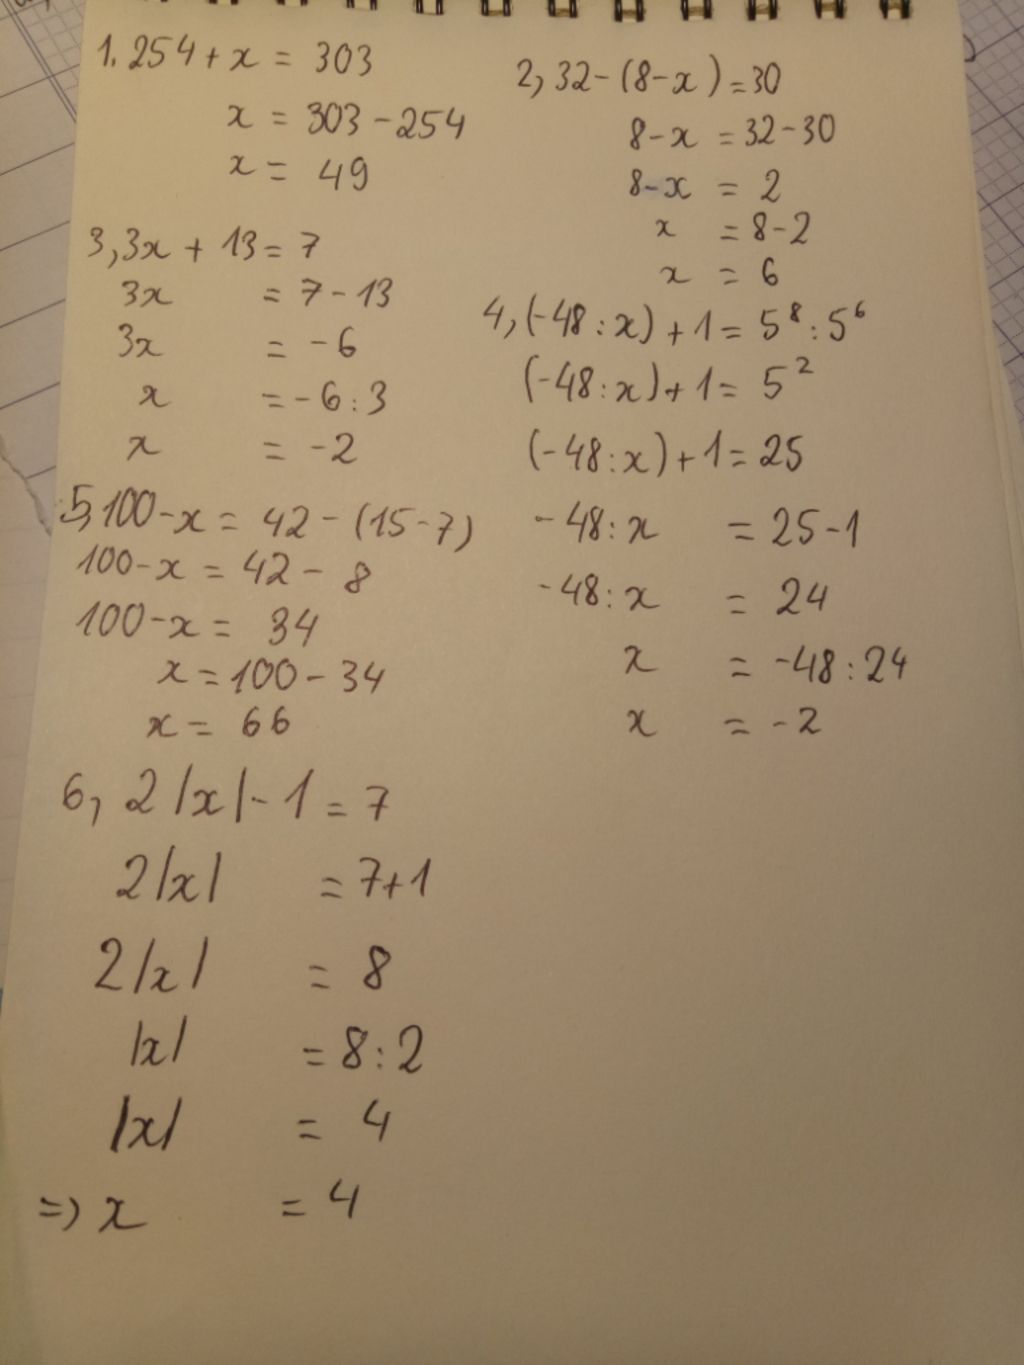 1. 254 + x = 303
x = 303 - 254
x = 49
2, 32 - (8 - x) = 30
8 - x = 32 - 30
8 - x = 2
x = 8 - 2
x = 6
3, 3x + 13 = 7
3x = 7 - 13
3x = -6
x = -6 : 3
x = -2
4, (-48 : x) + 1 = 5⁸ : 5⁶
(-48 : x) + 1 = 5²
(-48 : x) + 1 = 25
-48 : x = 25 - 1
-48 : x = 24
x = -48 : 24
x = -2
5, 100 - x = 42 - (15 - 7)
100 - x = 42 - 8
100 - x = 34
x = 100 - 34
x = 66
6, 2|x| - 1 = 7
2|x| = 7 + 1
2|x| = 8
|x| = 8 : 2
|x| = 4
=> x = 4